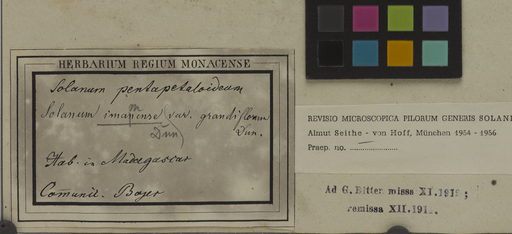 HERBARIUM REGIUM MONACENSE
Solanum pentapetaloideum
Solanum imanense var. grandiflorum
m
Dun) Dun.
Hab. in Madagascar
Comunic. Bojer
REVISIO MICROSCOPICA PILORUM GENERIS SOLANI
Almut Seithe - von Hoff, München 1954 - 1956
Praep. no.
Ad G. Bitter missa XI.1919;
remissa XII.191